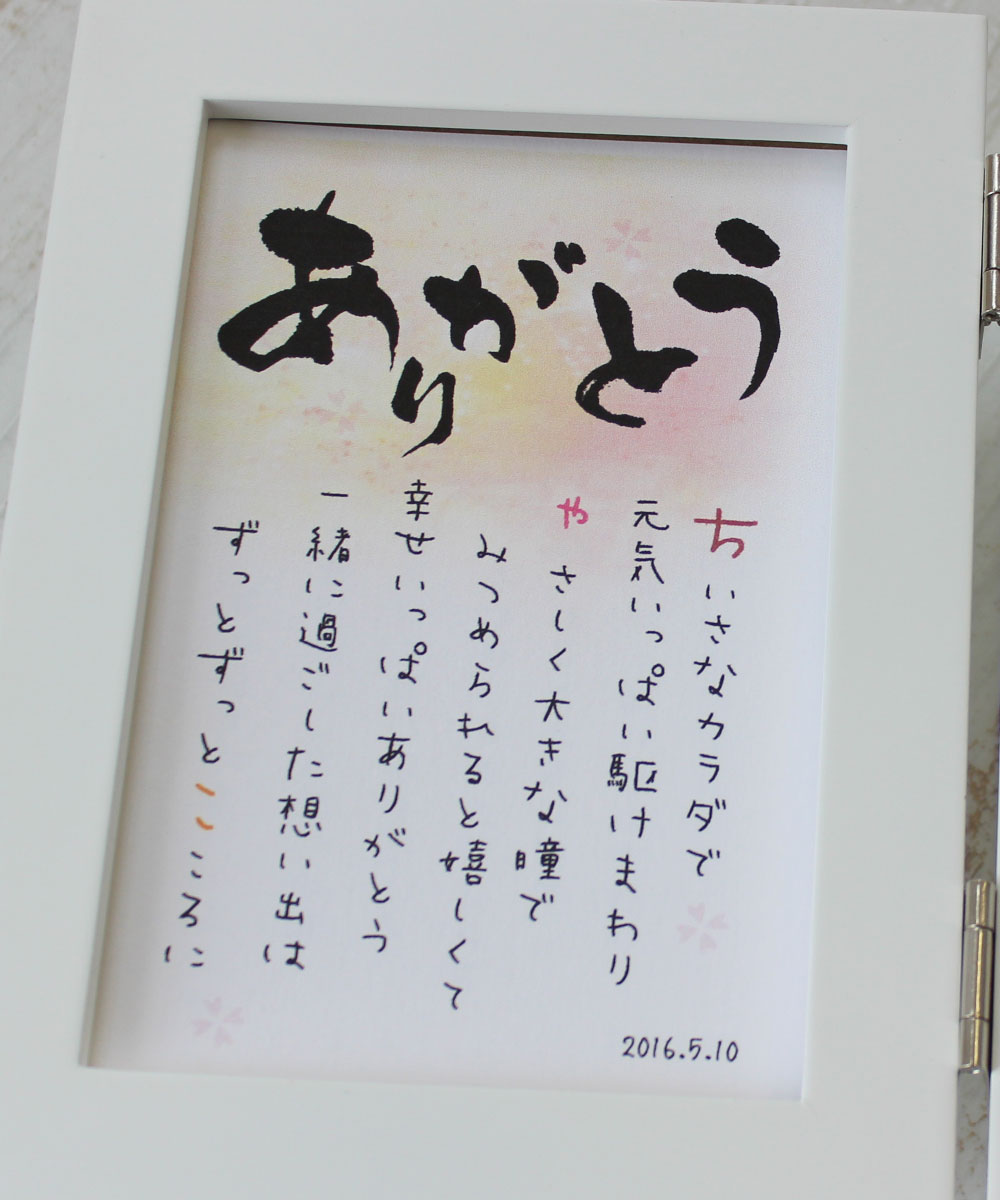 ありがとう
ちいさなカラダで
元気いっぱい駆けまわり
やさしく大きな瞳で
みつめられると嬉しくて
幸せいっぱいありがとう
一緒に過ごした想い出は
ずっとずっとこころに
2016.5.10